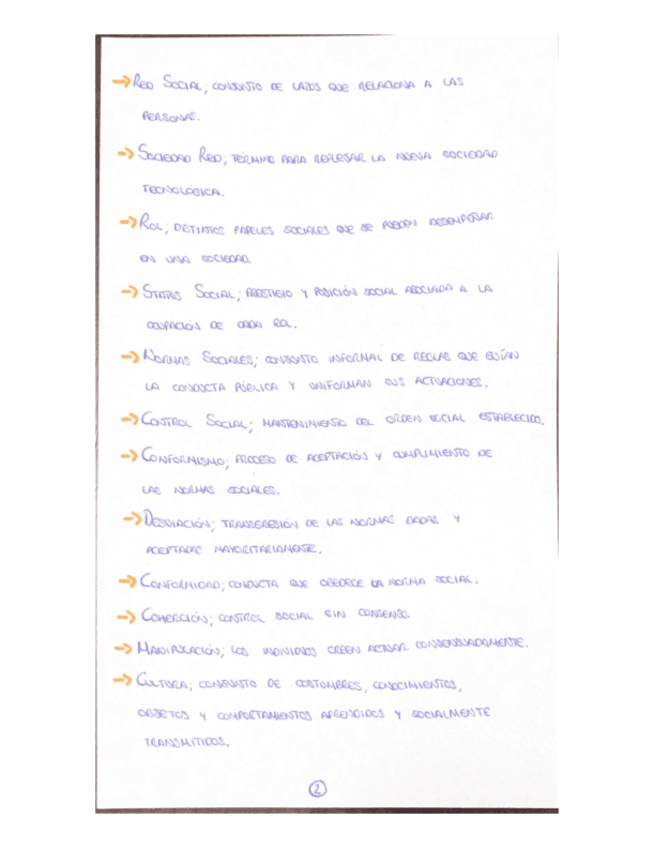 → Red Social; conjunto de lazos que relaciona a las
personas.
→ Sociedad Red; término para reflejar la nueva sociedad
tecnológica.
→ Rol; distintos papeles sociales que se pueden desempeñar
en una sociedad.
→ Status Social; prestigio y posición social asociada a la
ocupación de cada rol.
→ Normas Sociales; conjunto informal de reglas que guían
la conducta pública y uniforman sus actuaciones.
→ Control Social; mantenimiento del orden social establecido.
→ Conformismo; proceso de aceptación y cumplimiento de
las normas sociales.
→ Desviación; transgresión de las normas dadas y
aceptadas mayoritariamente.
→ Conformidad; conducta que obedece la norma social.
→ Coherción; control social sin consenso.
→ Manipulación; los individuos creen actuar consensuadamente.
→ Cultura; conjunto de costumbres, conocimientos,
objetos y comportamientos aprendidos y socialmente
transmitidos.
2